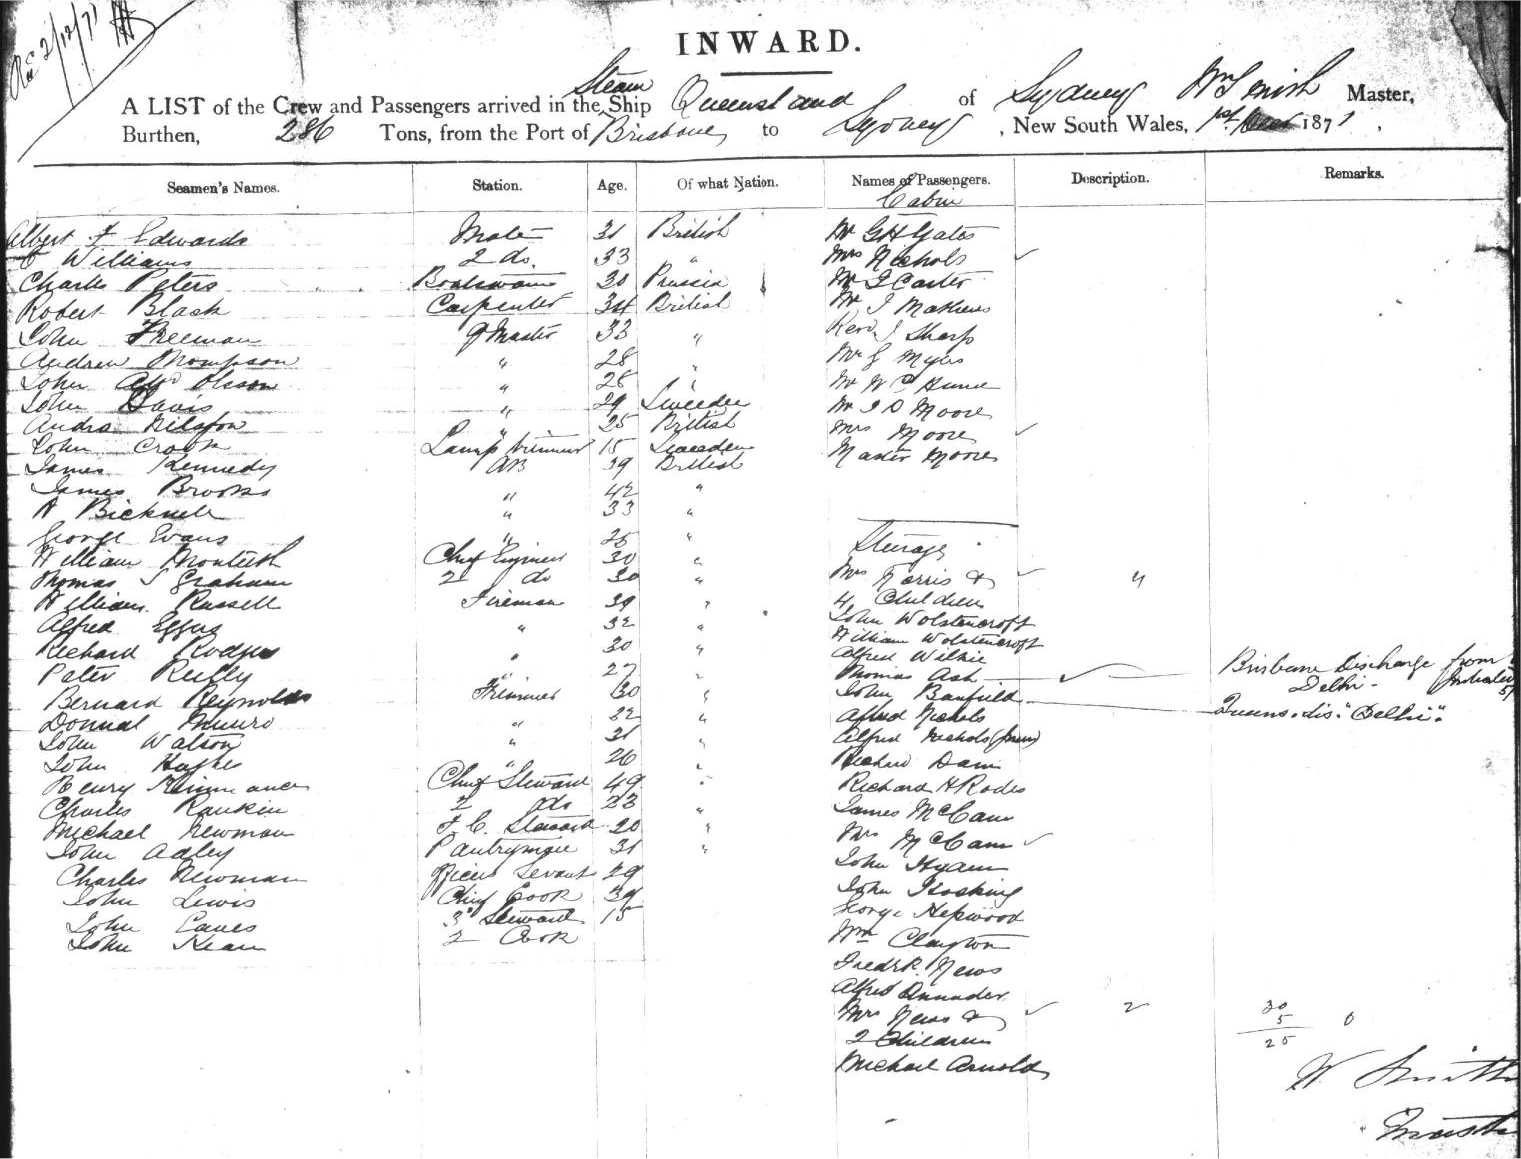 Rec 2/12/71
INWARD.
A LIST of the Crew and Passengers arrived in the Steam Ship Queensland of Sydney Master,
Burthen, 286 Tons, from the Port of Brisbane to Sydney, New South Wales, 1st 1871.
Seamen's Names. Station. Age. Of what Nation. Names of Passengers. Description. Remarks.
Cabin
Albert F Edwards Mate 31 British Mr GH Yates
Williams 2 do. 33 " Mrs Nichols ✓
Charles Peters Boatswain 30 Prussia Mr Carter
Robert Black Carpenter 34 British Mr J Mathews
John Freeman Q Master 33 " Revd J Sharp
Andrew Thompson " 28 " Mr G Myers
John Olsson " 28 " Mr Hume
John Davis " 29 Sweeden Mr Moore
Andrs Nilsson " 25 British Mrs Moore ✓
John Crook Lamp trimmer 15 Sweeden Master Moore
James Kennedy AB 39 British
James Brooks " 42 "
A Bicknell " 33 "
George Evans " 25 "
Steerage
William Monteith Chief Engineer 30 "
Thomas S Graham 2 do 30 " Mrs Norris & ✓ 4
William Russell Fireman 39 " 4 Children
Alfred Eggers " 32 " John Wolstencroft
Richard Rodgers " 30 " William Wolstencroft
Alfred Wilkie
Peter Reilly " 27 " Thomas Ash ✓ Brisbane Discharge from
Delhi
Bernard Reynolds Trimmer 30 " John Banfield
Donnal Munro " 22 " Alfred Nichols Queens. dis. "Delhi".
John Watson " 31 " Alfred Nichols (Junr)
John Hughes " 26 " Richard Dain
Henry Chief Steward 49 " Richard H Rodes
Charles Rankin 2 do 23 " James McCann
Michael Newman F. C. Steward 20 " Mrs McCann ✓
John Adley Pantryman 31 " John Hyam
Charles Newman Officers Servant 29 John Hosking
John Lewis Chief Cook 39 George Hepwood
John Eaves 3 Steward 15 Wm Clayton
John Kean 2 Cook
Fredrk. News
Alfred
Mrs News & ✓ 2
2 Children
Michael Arnold
30
5
25
0
W Smith